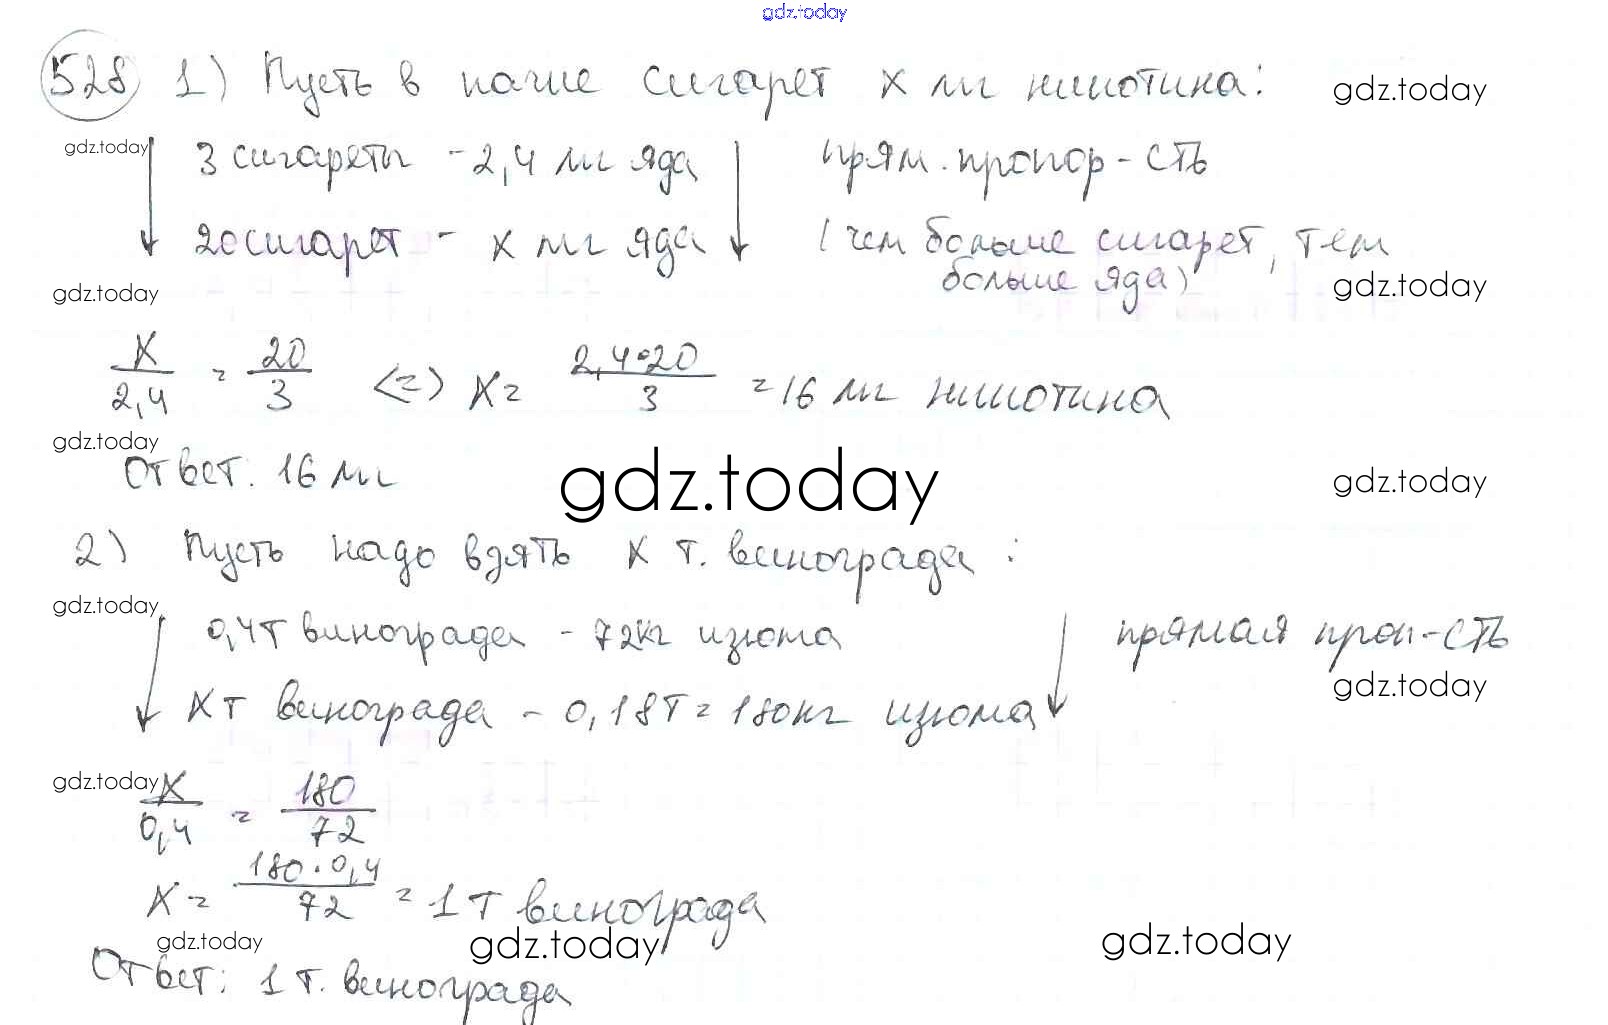 gdz.today
528 1) Пусть в пачке сигарет x мг никотина: gdz.today
gdz.today 3 сигареты - 2,4 мг яда прям. пропор-сть
20 сигарет - x мг яда (чем больше сигарет, тем
больше яда)
gdz.today gdz.today
x/2,4 = 20/3 <=> x = 2,4•20/3 = 16 мг никотина
gdz.today
Ответ: 16 мг gdz.today gdz.today
2) Пусть надо взять x т. винограда:
gdz.today
0,4т винограда - 72кг изюма прямая проп-сть
xт винограда - 0,18т = 180кг изюма gdz.today
gdz.today
x/0,4 = 180/72
x = 180•0,4/72 = 1 т винограда
gdz.today gdz.today gdz.today
Ответ: 1 т. винограда